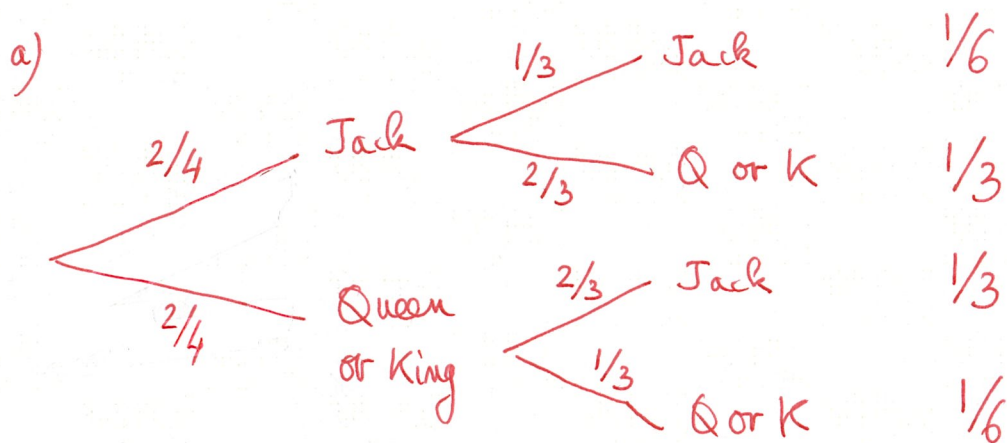 a)
1/3 Jack 1/6
2/4 Jack
2/3 Q or K 1/3
2/4 Queen or King
2/3 Jack 1/3
1/3 Q or K 1/6